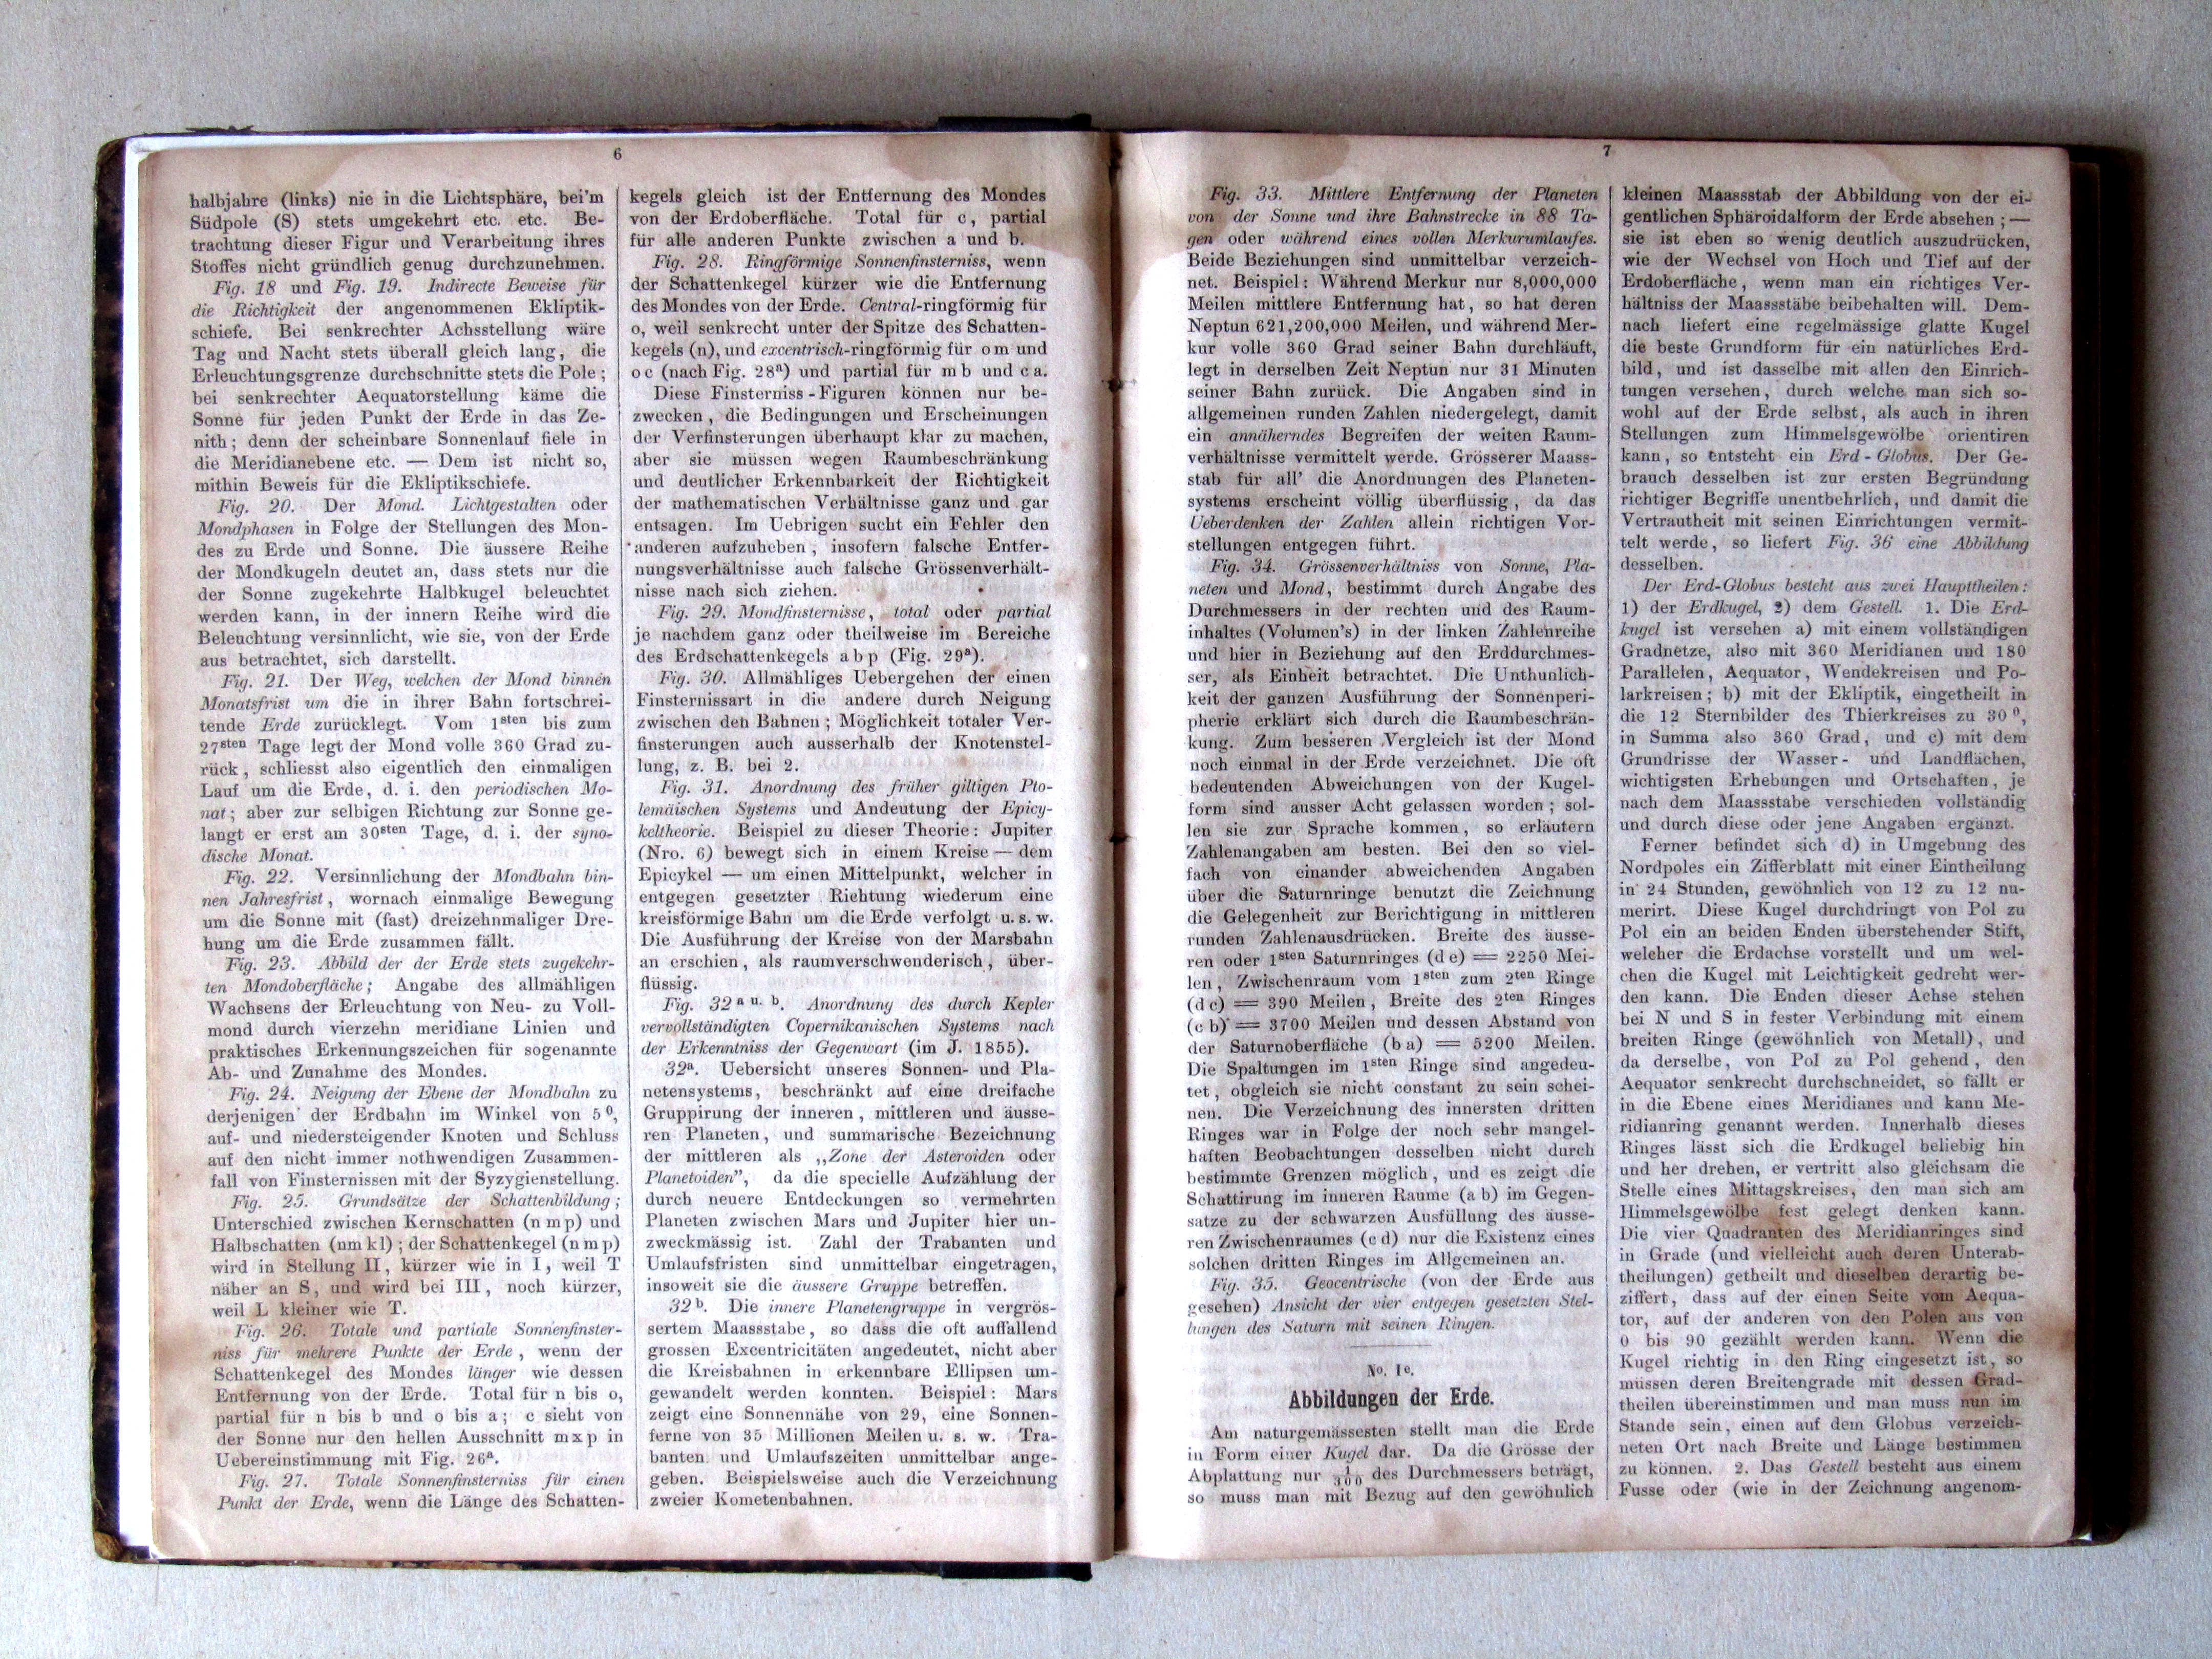 6
halbjahre (links) nie in die Lichtsphäre, bei'm
Südpole (S) stets umgekehrt etc. etc. Be-
trachtung dieser Figur und Verarbeitung ihres
Stoffes nicht gründlich genug durchzunehmen.
Fig. 18 und Fig. 19. Indirecte Beweise für
die Richtigkeit der angenommenen Ekliptik-
schiefe. Bei senkrechter Achsstellung wäre
Tag und Nacht stets überall gleich lang, die
Erleuchtungsgrenze durchschnitte stets die Pole;
bei senkrechter Aequatorstellung käme die
Sonne für jeden Punkt der Erde in das Ze-
nith; denn der scheinbare Sonnenlauf fiele in
die Meridianebene etc. — Dem ist nicht so,
mithin Beweis für die Ekliptikschiefe.
Fig. 20. Der Mond. Lichtgestalten oder
Mondphasen in Folge der Stellungen des Mon-
des zu Erde und Sonne. Die äussere Reihe
der Mondkugeln deutet an, dass stets nur die
der Sonne zugekehrte Halbkugel beleuchtet
werden kann, in der innern Reihe wird die
Beleuchtung versinnlicht, wie sie, von der Erde
aus betrachtet, sich darstellt.
Fig. 21. Der Weg, welchen der Mond binnen
Monatsfrist um die in ihrer Bahn fortschrei-
tende Erde zurücklegt. Vom 1sten bis zum
27sten Tage legt der Mond volle 360 Grad zu-
rück, schliesst also eigentlich den einmaligen
Lauf um die Erde, d. i. den periodischen Mo-
nat; aber zur selbigen Richtung zur Sonne ge-
langt er erst am 30sten Tage, d. i. der syno-
dische Monat.
Fig. 22. Versinnlichung der Mondbahn bin-
nen Jahresfrist, wornach einmalige Bewegung
um die Sonne mit (fast) dreizehnmaliger Dre-
hung um die Erde zusammen fällt.
Fig. 23. Abbild der der Erde stets zugekehr-
ten Mondoberfläche; Angabe des allmähligen
Wachsens der Erleuchtung von Neu- zu Voll-
mond durch vierzehn meridiane Linien und
praktisches Erkennungszeichen für sogenannte
Ab- und Zunahme des Mondes.
Fig. 24. Neigung der Ebene der Mondbahn zu
derjenigen der Erdbahn im Winkel von 5⁰,
auf- und niedersteigender Knoten und Schluss
auf den nicht immer nothwendigen Zusammen-
fall von Finsternissen mit der Syzygienstellung.
Fig. 25. Grundsätze der Schattenbildung;
Unterschied zwischen Kernschatten (n m p) und
Halbschatten (nm kl); der Schattenkegel (n m p)
wird in Stellung II, kürzer wie in I, weil T
näher an S, und wird bei III, noch kürzer,
weil L kleiner wie T.
Fig. 26. Totale und partiale Sonnenfinster-
niss für mehrere Punkte der Erde, wenn der
Schattenkegel des Mondes länger wie dessen
Entfernung von der Erde. Total für n bis o,
partial für n bis b und o bis a; c sieht von
der Sonne nur den hellen Ausschnitt m x p in
Uebereinstimmung mit Fig. 26ª.
Fig. 27. Totale Sonnenfinsterniss für einen
Punkt der Erde, wenn die Länge des Schatten-
kegels gleich ist der Entfernung des Mondes
von der Erdoberfläche. Total für c, partial
für alle anderen Punkte zwischen a und b.
Fig. 28. Ringförmige Sonnenfinsterniss, wenn
der Schattenkegel kürzer wie die Entfernung
des Mondes von der Erde. Central-ringförmig für
o, weil senkrecht unter der Spitze des Schatten-
kegels (n), und excentrisch-ringförmig für o m und
o c (nach Fig. 28ª) und partial für m b und c a.
Diese Finsterniss-Figuren können nur be-
zwecken, die Bedingungen und Erscheinungen
der Verfinsterungen überhaupt klar zu machen,
aber sie müssen wegen Raumbeschränkung
und deutlicher Erkennbarkeit der Richtigkeit
der mathematischen Verhältnisse ganz und gar
entsagen. Im Uebrigen sucht ein Fehler den
anderen aufzuheben, insofern falsche Entfer-
nungsverhältnisse auch falsche Grössenverhält-
nisse nach sich ziehen.
Fig. 29. Mondfinsternisse, total oder partial
je nachdem ganz oder theilweise im Bereiche
des Erdschattenkegels a b p (Fig. 29ª).
Fig. 30. Allmähliges Uebergehen der einen
Finsternissart in die andere durch Neigung
zwischen den Bahnen; Möglichkeit totaler Ver-
finsterungen auch ausserhalb der Knotenstel-
lung, z. B. bei 2.
Fig. 31. Anordnung des früher giltigen Pto-
lemäischen Systems und Andeutung der Epicy-
keltheorie. Beispiel zu dieser Theorie: Jupiter
(Nro. 6) bewegt sich in einem Kreise — dem
Epicykel — um einen Mittelpunkt, welcher in
entgegen gesetzter Richtung wiederum eine
kreisförmige Bahn um die Erde verfolgt u. s. w.
Die Ausführung der Kreise von der Marsbahn
an erschien, als raumverschwenderisch, über-
flüssig.
Fig. 32 a u. b. Anordnung des durch Kepler
vervollständigten Copernikanischen Systems nach
der Erkenntniss der Gegenwart (im J. 1855).
32ª. Uebersicht unseres Sonnen- und Pla-
netensystems, beschränkt auf eine dreifache
Gruppirung der inneren, mittleren und äusse-
ren Planeten, und summarische Bezeichnung
der mittleren als ,,Zone der Asteroiden oder
Planetoiden", da die specielle Aufzählung der
durch neuere Entdeckungen so vermehrten
Planeten zwischen Mars und Jupiter hier un-
zweckmässig ist. Zahl der Trabanten und
Umlaufsfristen sind unmittelbar eingetragen,
insoweit sie die äussere Gruppe betreffen.
32 b. Die innere Planetengruppe in vergrös-
sertem Maassstabe, so dass die oft auffallend
grossen Excentricitäten angedeutet, nicht aber
die Kreisbahnen in erkennbare Ellipsen um-
gewandelt werden konnten. Beispiel: Mars
zeigt eine Sonnennähe von 29, eine Sonnen-
ferne von 35 Millionen Meilen u. s. w. Tra-
banten und Umlaufszeiten unmittelbar ange-
geben. Beispielsweise auch die Verzeichnung
zweier Kometenbahnen.
7
Fig. 33. Mittlere Entfernung der Planeten
von der Sonne und ihre Bahnstrecke in 88 Ta-
gen oder während eines vollen Merkurumlaufes.
Beide Beziehungen sind unmittelbar verzeich-
net. Beispiel: Während Merkur nur 8,000,000
Meilen mittlere Entfernung hat, so hat deren
Neptun 621,200,000 Meilen, und während Mer-
kur volle 360 Grad seiner Bahn durchläuft,
legt in derselben Zeit Neptun nur 31 Minuten
seiner Bahn zurück. Die Angaben sind in
allgemeinen runden Zahlen niedergelegt, damit
ein annäherndes Begreifen der weiten Raum-
verhältnisse vermittelt werde. Grösserer Maass-
stab für all' die Anordnungen des Planeten-
systems erscheint völlig überflüssig, da das
Ueberdenken der Zahlen allein richtigen Vor-
stellungen entgegen führt.
Fig. 34. Grössenverhältniss von Sonne, Pla-
neten und Mond, bestimmt durch Angabe des
Durchmessers in der rechten und des Raum-
inhaltes (Volumen's) in der linken Zahlenreihe
und hier in Beziehung auf den Erddurchmes-
ser, als Einheit betrachtet. Die Unthunlich-
keit der ganzen Ausführung der Sonnenperi-
pherie erklärt sich durch die Raumbeschrän-
kung. Zum besseren Vergleich ist der Mond
noch einmal in der Erde verzeichnet. Die oft
bedeutenden Abweichungen von der Kugel-
form sind ausser Acht gelassen worden; sol-
len sie zur Sprache kommen, so erläutern
Zahlenangaben am besten. Bei den so viel-
fach von einander abweichenden Angaben
über die Saturnringe benutzt die Zeichnung
die Gelegenheit zur Berichtigung in mittleren
runden Zahlenausdrücken. Breite des äusse-
ren oder 1sten Saturnringes (d e) = 2250 Mei-
len, Zwischenraum vom 1sten zum 2ten Ringe
(d c) = 390 Meilen, Breite des 2ten Ringes
(c b) = 3700 Meilen und dessen Abstand von
der Saturnoberfläche (b a) = 5200 Meilen.
Die Spaltungen im 1sten Ringe sind angedeu-
tet, obgleich sie nicht constant zu sein schei-
nen. Die Verzeichnung des innersten dritten
Ringes war in Folge der noch sehr mangel-
haften Beobachtungen desselben nicht durch
bestimmte Grenzen möglich, und es zeigt die
Schattirung im inneren Raume (a b) im Gegen-
satze zu der schwarzen Ausfüllung des äusse-
ren Zwischenraumes (c d) nur die Existenz eines
solchen dritten Ringes im Allgemeinen an.
Fig. 35. Geocentrische (von der Erde aus
gesehen) Ansicht der vier entgegen gesetzten Stel-
lungen des Saturn mit seinen Ringen.
No. 1c.
Abbildungen der Erde.
Am naturgemässesten stellt man die Erde
in Form einer Kugel dar. Da die Grösse der
Abplattung nur 1/300 des Durchmessers beträgt,
so muss man mit Bezug auf den gewöhnlich
kleinen Maassstab der Abbildung von der ei-
gentlichen Sphäroidalform der Erde absehen; —
sie ist eben so wenig deutlich auszudrücken,
wie der Wechsel von Hoch und Tief auf der
Erdoberfläche, wenn man ein richtiges Ver-
hältniss der Maassstäbe beibehalten will. Dem-
nach liefert eine regelmässige glatte Kugel
die beste Grundform für ein natürliches Erd-
bild, und ist dasselbe mit allen den Einrich-
tungen versehen, durch welche man sich so-
wohl auf der Erde selbst, als auch in ihren
Stellungen zum Himmelsgewölbe orientiren
kann, so entsteht ein Erd-Globus. Der Ge-
brauch desselben ist zur ersten Begründung
richtiger Begriffe unentbehrlich, und damit die
Vertrautheit mit seinen Einrichtungen vermit-
telt werde, so liefert Fig. 36 eine Abbildung
desselben.
Der Erd-Globus besteht aus zwei Haupttheilen:
1) der Erdkugel, 2) dem Gestell. 1. Die Erd-
kugel ist versehen a) mit einem vollständigen
Gradnetze, also mit 360 Meridianen und 180
Parallelen, Aequator, Wendekreisen und Po-
larkreisen; b) mit der Ekliptik, eingetheilt in
die 12 Sternbilder des Thierkreises zu 30⁰,
in Summa also 360 Grad, und c) mit dem
Grundrisse der Wasser- und Landflächen,
wichtigsten Erhebungen und Ortschaften, je
nach dem Maassstabe verschieden vollständig
und durch diese oder jene Angaben ergänzt.
Ferner befindet sich d) in Umgebung des
Nordpoles ein Zifferblatt mit einer Eintheilung
in 24 Stunden, gewöhnlich von 12 zu 12 nu-
merirt. Diese Kugel durchdringt von Pol zu
Pol ein an beiden Enden überstehender Stift,
welcher die Erdachse vorstellt und um wel-
chen die Kugel mit Leichtigkeit gedreht wer-
den kann. Die Enden dieser Achse stehen
bei N und S in fester Verbindung mit einem
breiten Ringe (gewöhnlich von Metall), und
da derselbe, von Pol zu Pol gehend, den
Aequator senkrecht durchschneidet, so fällt er
in die Ebene eines Meridianes und kann Me-
ridianring genannt werden. Innerhalb dieses
Ringes lässt sich die Erdkugel beliebig hin
und her drehen, er vertritt also gleichsam die
Stelle eines Mittagskreises, den man sich am
Himmelsgewölbe fest gelegt denken kann.
Die vier Quadranten des Meridianringes sind
in Grade (und vielleicht auch deren Unterab-
theilungen) getheilt und dieselben derartig be-
ziffert, dass auf der einen Seite vom Aequa-
tor, auf der anderen von den Polen aus von
0 bis 90 gezählt werden kann. Wenn die
Kugel richtig in den Ring eingesetzt ist, so
müssen deren Breitengrade mit dessen Grad-
theilen übereinstimmen und man muss nun im
Stande sein, einen auf dem Globus verzeich-
neten Ort nach Breite und Länge bestimmen
zu können. 2. Das Gestell besteht aus einem
Fusse oder (wie in der Zeichnung angenom-